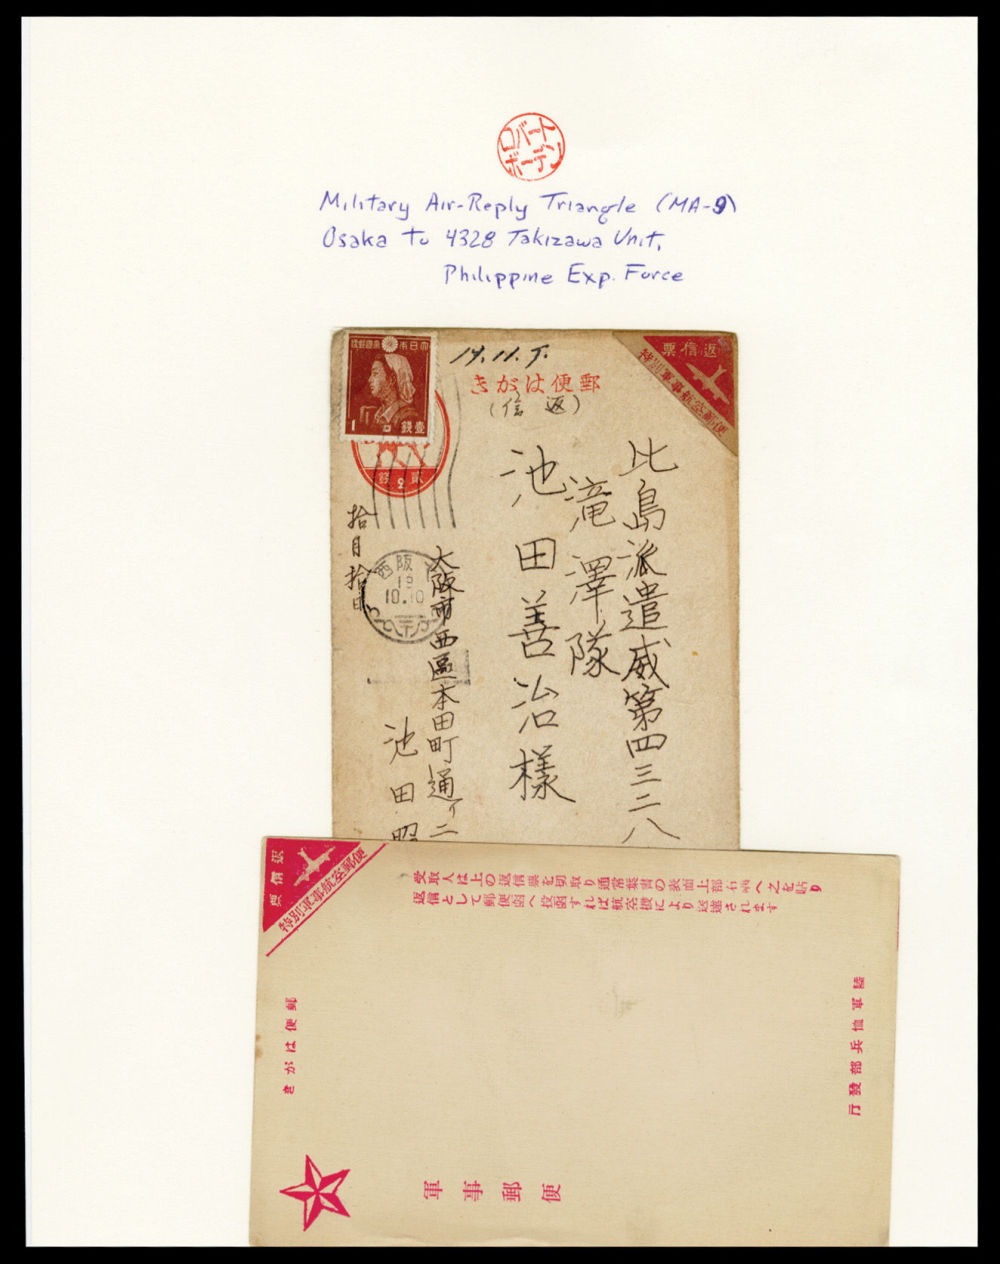 ロバート
ボーデン
Military Air-Reply Triangle (MA-9)
Osaka to 4328 Takizawa Unit,
Philippine Exp. Force
19.11.9.
郵便はがき
(返信)
返信票
特別軍事航空郵便
大日本帝国郵便
1 壹錢
貳 2 錢
比島派遣威第四三二八
滝澤隊
池田善治様
拾月拾日
大阪西
19
10.10
大阪市西區本田町通イ二
池田照
返信票
特別軍事航空郵便
受取人は上の返信票を切取り通常葉書の表面上部右角へ之を貼り
返信として郵便函へ投函すれば航空機により送達されます
郵便はがき
陸軍恤兵部發行
軍事郵便